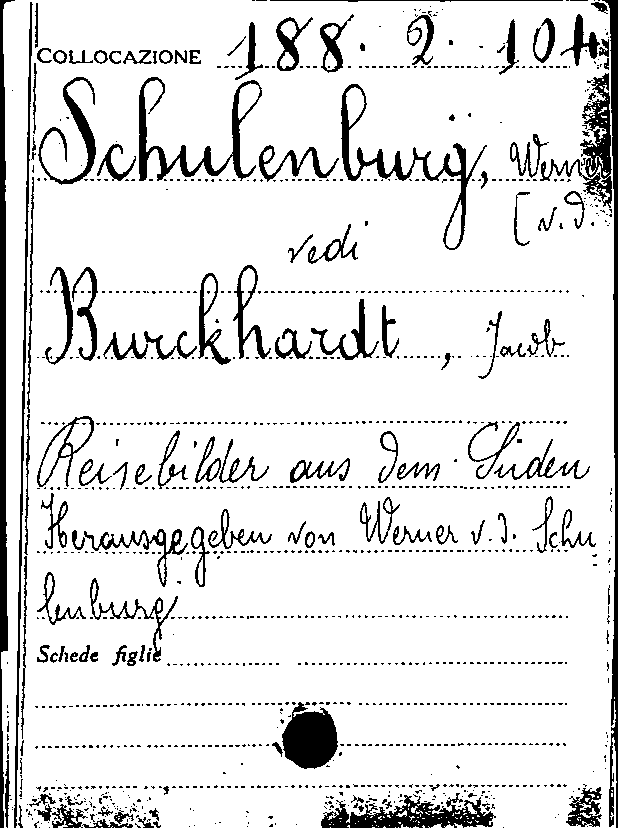 COLLOCAZIONE 188. 2. 104
Schulenburg, Werner
[v.d.
vedi
Burckhardt, Jacob
Reisebilder aus dem Süden
Herausgegeben von Werner v.d. Schu
lenburg
Schede figlie